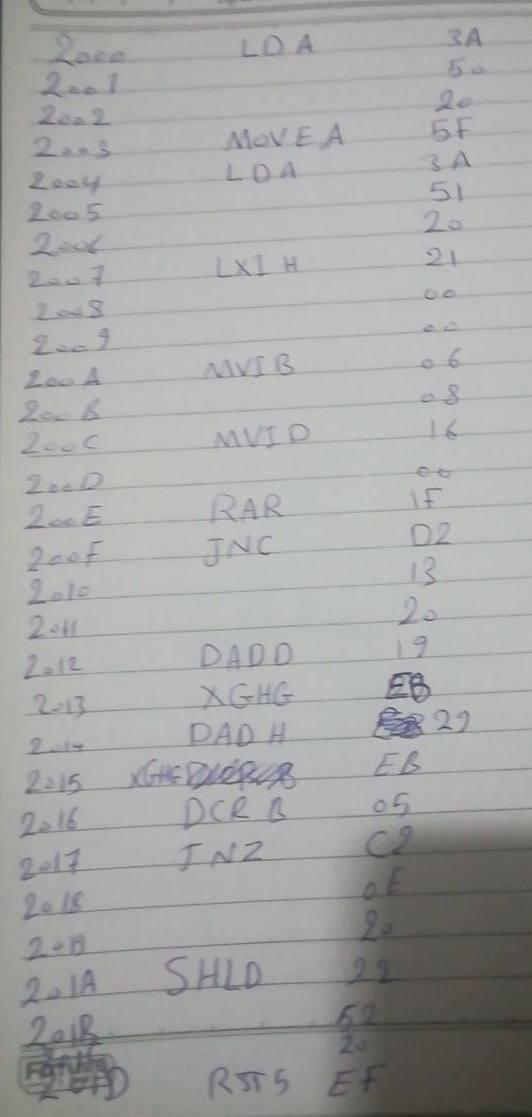 2000 LDA 3A
2001 50
2002 20
2003 MOVEA 5F
2004 LDA 3A
2005 51
2006 20
2007 LXI H 21
2008 00
2009 00
200A MVIB 06
200B 08
200C MVID 16
200D 00
200E RAR 1F
200F JNC D2
2010 13
2011 20
2012 DADD 19
2013 XGHG EB
2014 DAD H 29
2015 XGHG EB
2016 DCR B 05
2017 JNZ C2
2018 0E
2019 20
201A SHLD 22
201B 52
20
RST5 EF